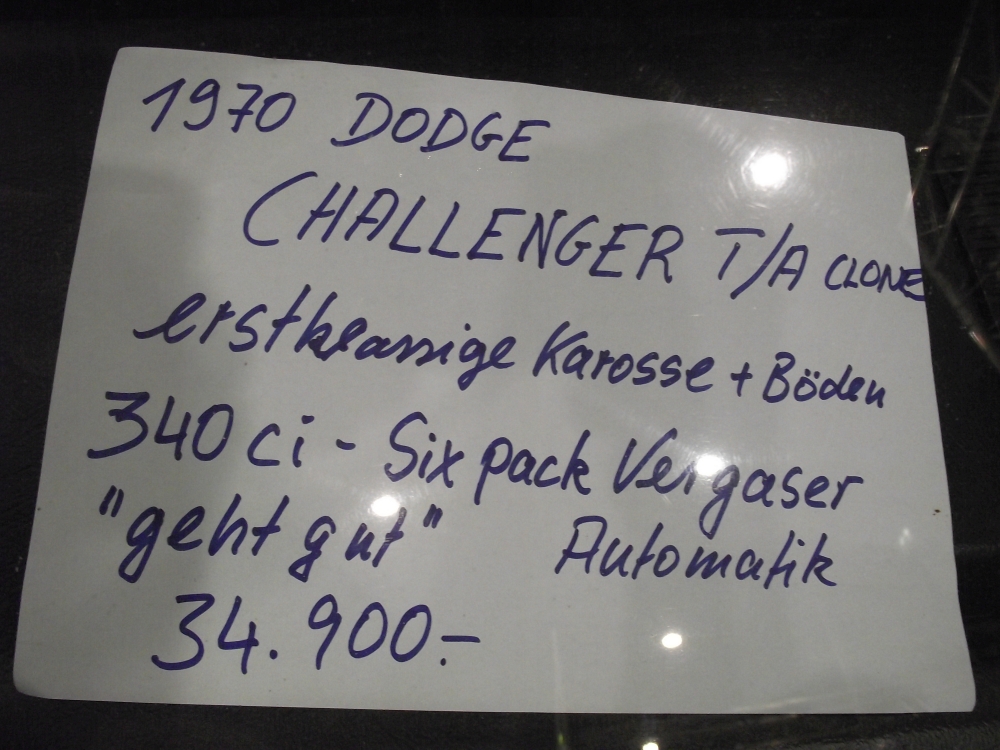 1970 DODGE
CHALLENGER T/A CLONE
erstklassige Karosse + Böden
340 ci - Six pack Vergaser
"geht gut" Automatik
34.900.-